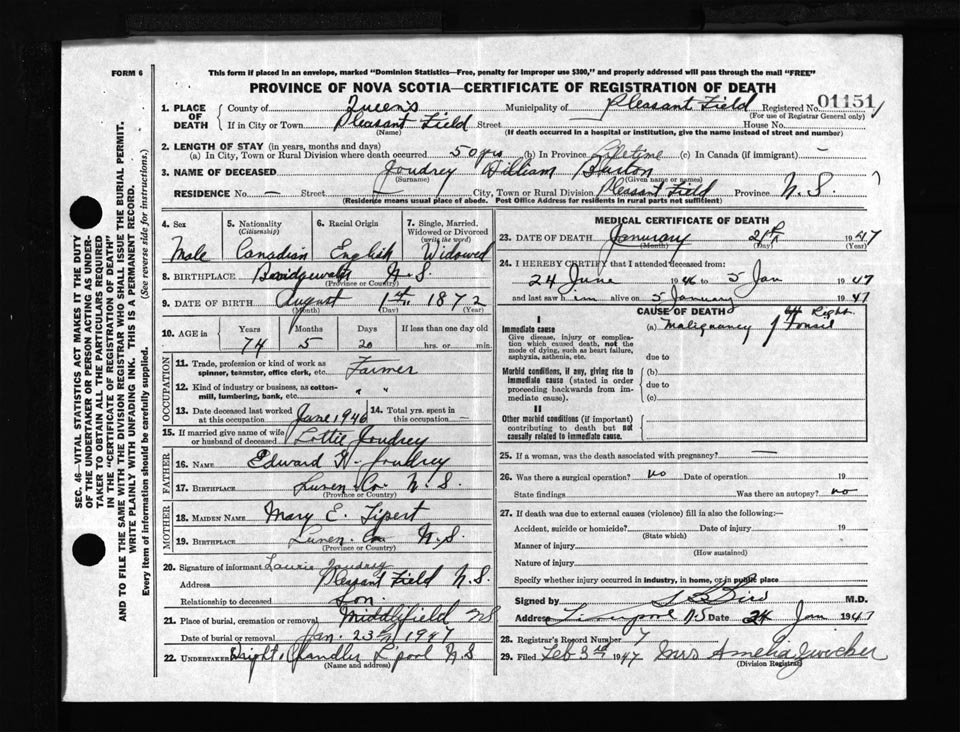 FORM 6
This form if placed in an envelope, marked "Dominion Statistics—Free, penalty for improper use $300," and properly addressed will pass through the mail "FREE"
PROVINCE OF NOVA SCOTIA—CERTIFICATE OF REGISTRATION OF DEATH
1. PLACE OF DEATH County of Queen's Municipality of Pleasant Field Registered No. 01151
(For use of Registrar General only)
If in City or Town Pleasant Field Street House No.
(Name) (If death occurred in a hospital or institution, give the name instead of street and number)
2. LENGTH OF STAY (in years, months and days)
(a) In City, Town or Rural Division where death occurred 50 yrs (b) In Province Lifetime (c) In Canada (if immigrant) —
3. NAME OF DECEASED Joudrey William
(Surname) (Given name or names)
RESIDENCE No. — Street — City, Town or Rural Division Pleasant Field Province N.S.
(Residence means usual place of abode. Post Office Address for residents in rural parts not sufficient)
4. Sex 5. Nationality (Citizenship) 6. Racial Origin 7. Single, Married, Widowed or Divorced (write the word)
Male Canadian English Widowed
8. BIRTHPLACE N.S.
(Province or Country)
9. DATE OF BIRTH August 1st 1872
(Month) (Day) (Year)
10. AGE in Years Months Days If less than one day old
74 5 20 hrs. or min.
OCCUPATION
11. Trade, profession or kind of work as spinner, teamster, office clerk, etc. Farmer
12. Kind of industry or business, as cotton-mill, lumbering, bank, etc. " "
13. Date deceased last worked at this occupation June 1946 14. Total yrs. spent in this occupation —
15. If married give name of wife or husband of deceased Lottie Joudrey
FATHER
16. NAME Edward H. Joudrey
17. BIRTHPLACE Lunen. Co. N.S.
(Province or Country)
MOTHER
18. MAIDEN NAME Mary E.
19. BIRTHPLACE Lunen. Co. N.S.
(Province or Country)
20. Signature of informant Laurie Joudrey
Address Pleasant Field N.S.
Relationship to deceased Son.
21. Place of burial, cremation or removal Middlefield NS
Date of burial or removal Jan. 23rd 1947
22. UNDERTAKER Wright Chandler L'pool N.S
(Name and address)
MEDICAL CERTIFICATE OF DEATH
23. DATE OF DEATH January 21st 1947
(Month) (Day) (Year)
24. I HEREBY CERTIFY that I attended deceased from:
24 June 1946 to 5 Jan 1947
and last saw h im alive on 5 January 1947
CAUSE OF DEATH
I
Immediate cause (a) Malignancy of Right Tonsil
Give disease, injury or complication which caused death, not the mode of dying, such as heart failure, asphyxia, asthenia, etc.
due to
Morbid conditions, if any, giving rise to immediate cause (stated in order proceeding backwards from immediate cause).
(b)
due to
(c)
II
Other morbid conditions (if important) contributing to death but not causally related to immediate cause.
25. If a woman, was the death associated with pregnancy? —
26. Was there a surgical operation? no Date of operation 19
State findings Was there an autopsy? no
27. If death was due to external causes (violence) fill in also the following:—
Accident, suicide or homicide? Date of injury 19
(State which)
Manner of injury
(How sustained)
Nature of injury
Specify whether injury occurred in industry, in home, or in public place
Signed by M.D.
Address Liverpool NS Date 24 Jan 1947
28. Registrar's Record Number 7
29. Filed Feb 3rd 1947 Mrs Amelia Zwicker
(Division Registrar)
SEC. 46—VITAL STATISTICS ACT MAKES IT THE DUTY
OF THE UNDERTAKER OR PERSON ACTING AS UNDER-
TAKER TO OBTAIN ALL THE PARTICULARS REQUIRED
IN THE "CERTIFICATE OF REGISTRATION OF DEATH"
AND TO FILE THE SAME WITH THE DIVISION REGISTRAR WHO SHALL ISSUE THE BURIAL PERMIT.
WRITE PLAINLY WITH UNFADING INK. THIS IS A PERMANENT RECORD.
Every item of information should be carefully supplied. (See reverse side for instructions.)